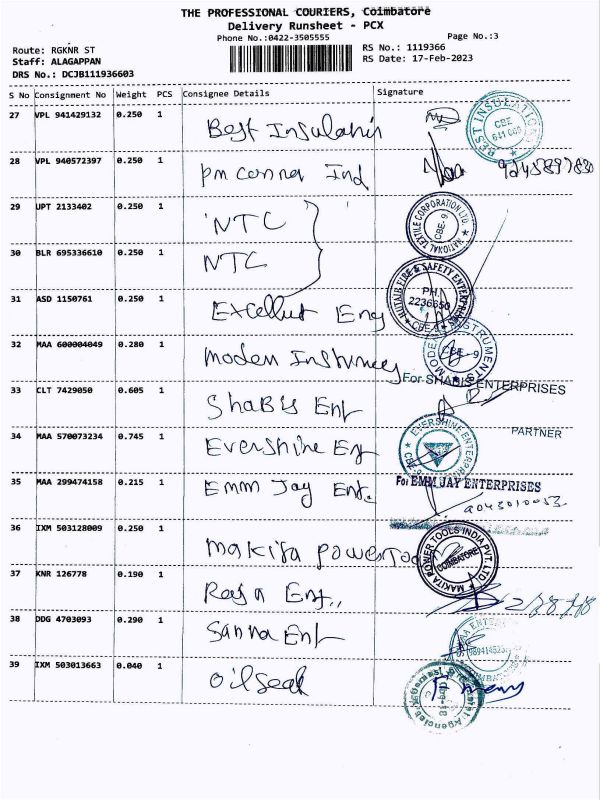 THE PROFESSIONAL COURIERS, Coimbatore
Delivery Runsheet - PCX
Phone No.:0422-3505555
Page No.:3
Route: RGKNR ST
Staff: ALAGAPPAN
DRS No.: DCJB111936603
RS No.: 1119366
RS Date: 17-Feb-2023
S No Consignment No Weight PCS Consignee Details Signature
27 VPL 941429132 0.250 1 Best Insulation BEST INSULATION CBE
28 VPL 940572397 0.250 1 Ind
29 UPT 2133402 0.250 1 NTC NATIONAL TEXTILE CORPORATION LTD. CBE-9
30 BLR 695336610 0.250 1 NTC
31 ASD 1150761 0.250 1 Excellent Eng FIRE & SAFETY ENTERPRISES PH. 2236650 CBE-9
32 MAA 600004049 0.280 1 Modern Instruments MODERN INSTRUMENTS CBE-9
For SHABIS ENTERPRISES
33 CLT 7429050 0.605 1 Shabis Ent
PARTNER
34 MAA 570073234 0.745 1 Evershine Ent EVERSHINE ENTERPRISES CBE
35 MAA 299474158 0.215 1 Emm Jay Ent. For EMM JAY ENTERPRISES
9043010053
36 IXM 503128009 0.250 1 Makita Powertools MAKITA POWER TOOLS INDIA PVT. LTD COIMBATORE
37 KNR 126778 0.190 1 Ent.,
38 DDG 4703093 0.290 1 Ent
39 IXM 503013663 0.040 1 Oilseal